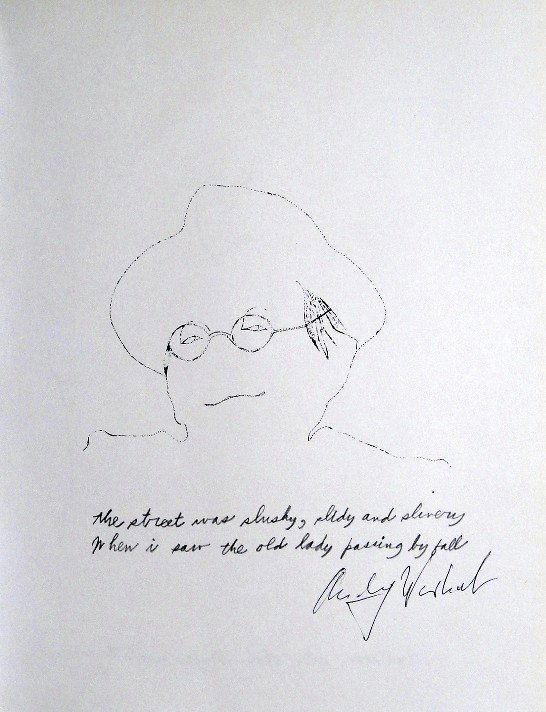 the street was slushy, slidy and slivery
When i saw the old lady passing by fall
Andy Warhol